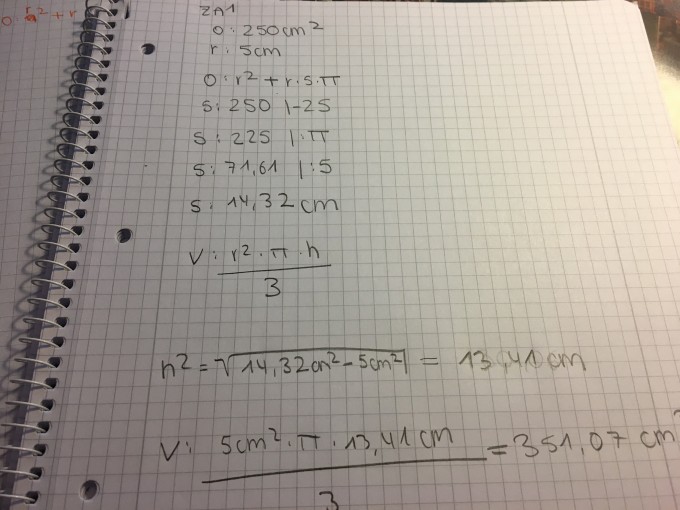 O: r² + r
ZA1
O: 250cm²
r: 5cm
O: r² + r · s · π
s: 250 |-25
s: 225 |:π
s: 71,61 |:5
s: 14,32 cm
V: r² · π · h
3
h² = √14,32cm² - 5cm² = 13,41 cm
V: 5cm² · π · 13,41 cm = 351,07 cm³
3